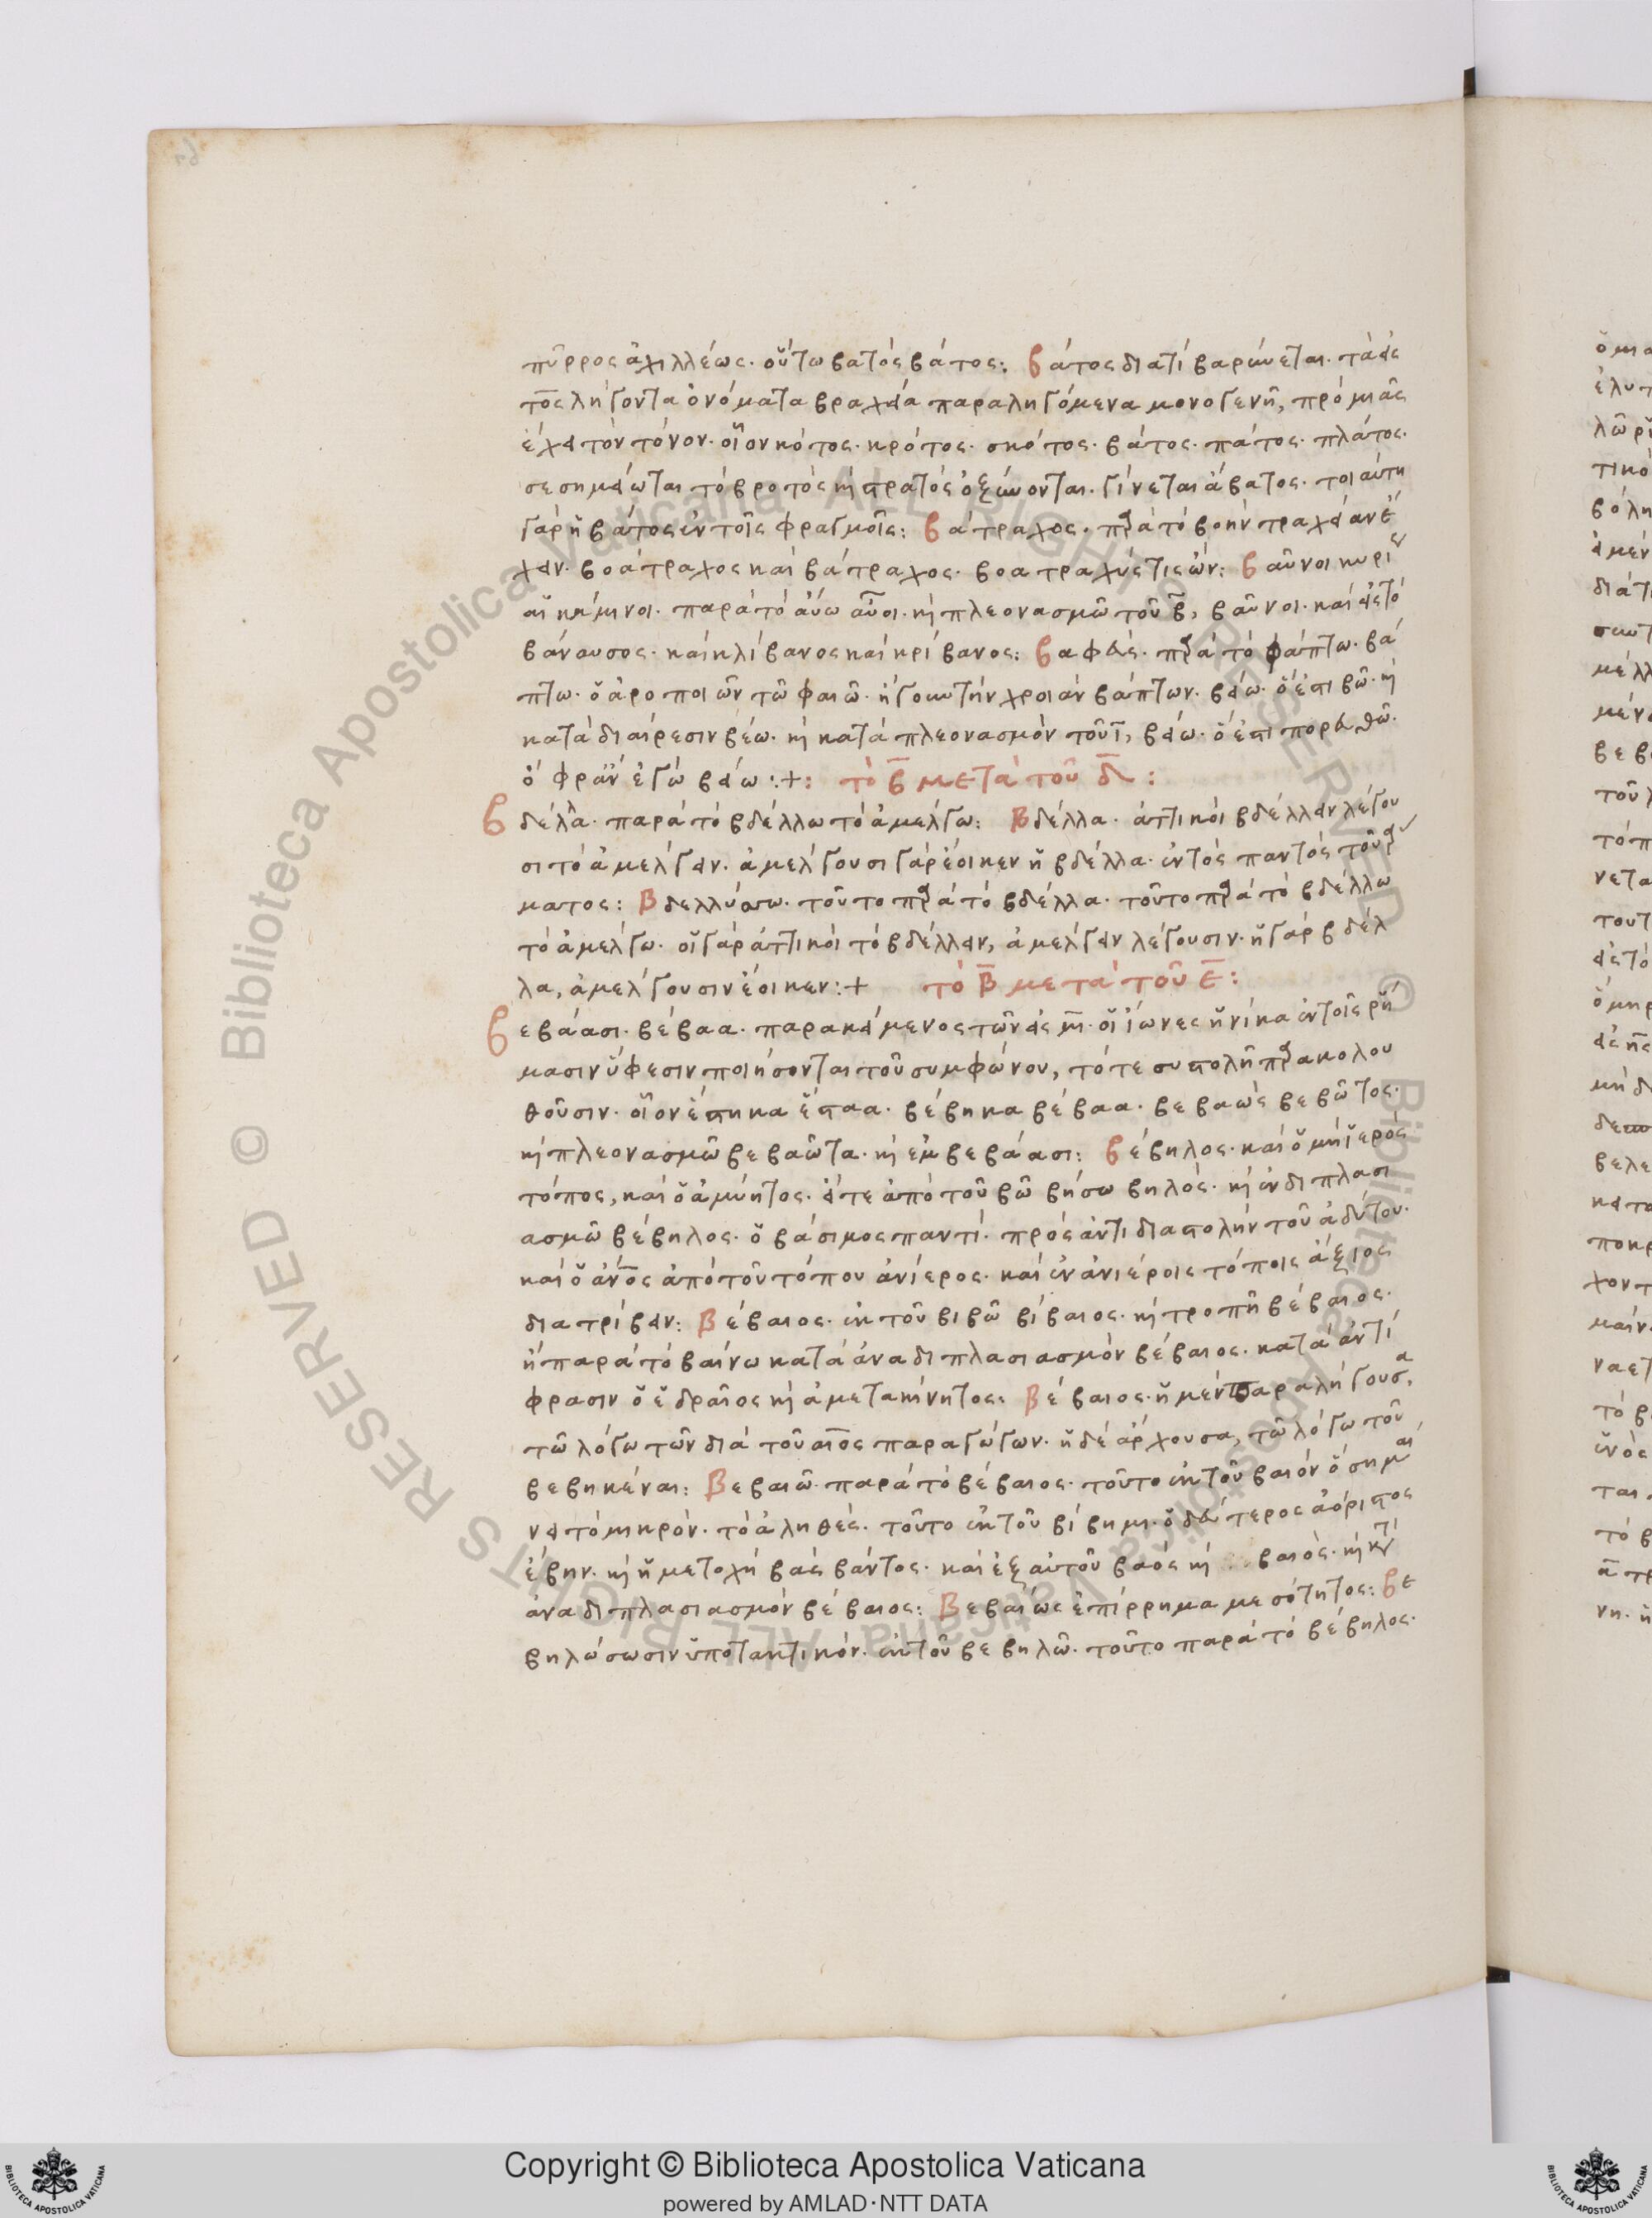 πῦρρος ἀχιλλέως· οὕτω βατὸς βάτος: βάτος διατί βαρύνεται· τὰ εἰς
τος λήγοντα ὀνόματα βραχεία παραληγόμενα μονογενῆ, πρὸ μιᾶς
ἔχει τὸν τόνον· οἷον κότος· κρότος· σκότος· βάτος· πάτος· πλάτος·
σεσημείωται τὸ βροτὸς καὶ στρατὸς ὀξύνονται· γίνεται ἄβατος· τοιαύτη
γὰρ ἡ βάτος ἐν τοῖς φραγμοῖς: βάτραχος· παρὰ τὸ βοὴν τραχείαν ἔ
χειν· βοάτραχος καὶ βάτραχος· βοατραχύς τις ὤν: βαῦνοι κυρί
αἱ κάμινοι· παρὰ τὸ αὔω αὖοι· καὶ πλεονασμῶ τοῦ β, βαῦνοι· καὶ εἰς τὸ
βάναυσος· καὶ κλίβανος καὶ κρίβανος: βαφεύς· παρὰ τὸ φάπτω· βά
πτω· ὁ ἀροποιῶν τῶ φαιῶ· ἤγουν τὴν χροιὰν βάπτων· βείω· ὅ ἐστι βῶ· καὶ
κατὰ διαίρεσιν βέω· καὶ κατὰ πλεονασμὸν τοῦ ι, βείω· ὅ ἐστι πορευθῶ·
ὄφρ' ἂν ἐγὼ βείω :+: τὸ β μετὰ τοῦ δ :
βδέλλα· παρὰ τὸ βδέλλω τὸ ἀμέλγω: Βδέλλα· ἀττικοὶ βδέλλειν λέγου
σι τὸ ἀμέλγειν· ἀμελγούσι γὰρ ἔοικεν ἡ βδέλλα· ἐντὸς παντὸς τοῦ
ματος: Βδελλύσσω· τοῦτο παρὰ τὸ βδέλλα· τοῦτο παρὰ τὸ βδέλλω
τὸ ἀμέλγω· οἱ γὰρ ἀττικοὶ τὸ βδέλλειν, ἀμέλγειν λέγουσιν· ἡ γὰρ βδέλ
λα, ἀμελγούσιν ἔοικεν :+ τὸ β μετὰ τοῦ ε :
βεβάασι· βέβαα· παρακείμενος τῶν εἰς μι· οἱ ἴωνες ἡνίκα ἐν τοῖς ῥή
μασιν ὕφεσιν ποιήσονται τοῦ συμφώνου, τότε συστολῆ παρακολου
θοῦσιν· οἷον ἕστηκα ἕσταα· βέβηκα βέβαα· βεβαὼς βεβῶτος·
καὶ πλεονασμῶ βεβαῶτα· καὶ ἐμβεβάασι: βέβηλος· καὶ ὁ μὴ ἱερὸς
τόπος, καὶ ὁ ἀμύητος· εἴτε ἀπὸ τοῦ βῶ βήσω βηλός· καὶ ἐν διπλασι
ασμῶ βέβηλος· ὁ βάσιμος παντί· πρὸς ἀντιδιαστολὴν τοῦ ἀδύτου·
καὶ ὁ ἄνος ἀπὸ τοῦ τόπου ἀνίερος· καὶ ἐν ἀνιέροις τόποις ἄξιος
διατρίβειν: Βέβαιος· ἐκ τοῦ βιβῶ βίβαιος· καὶ τροπῆ βέβαιος·
ἢ παρὰ τὸ βαίνω κατὰ ἀναδιπλασιασμὸν βέβαιος· κατὰ ἀντί
φρασιν ὁ ἑδραῖος καὶ ἀμετακίνητος: Βέβαιος· ἡ μὲν παραλήγουσα,
τῶ λόγω τῶν διὰ τοῦ αιος παραγώγων· ἡ δὲ ἄρχουσα, τῶ λόγω τοῦ
βεβηκέναι: Βεβαιῶ· παρὰ τὸ βέβαιος· τοῦτο ἐκ τοῦ βαιόν ὃ σημαί
νει τὸ μικρόν· τὸ ἀληθές· τοῦτο ἐκ τοῦ βίβημι· ὁ δεύτερος ἀόριστος
ἔβην· καὶ ἡ μετοχὴ βὰς βάντος· καὶ ἐξ αὐτοῦ βαός καὶ βαιός· καὶ κατὰ
ἀναδιπλασιασμὸν βέβαιος: Βεβαίως ἐπίρρημα μεσότητος: Βε
βηλώσωσιν ὑποτακτικόν· ἐκ τοῦ βεβηλῶ· τοῦτο παρὰ τὸ βέβηλος·
Copyright © Biblioteca Apostolica Vaticana
powered by AMLAD·NTT DATA